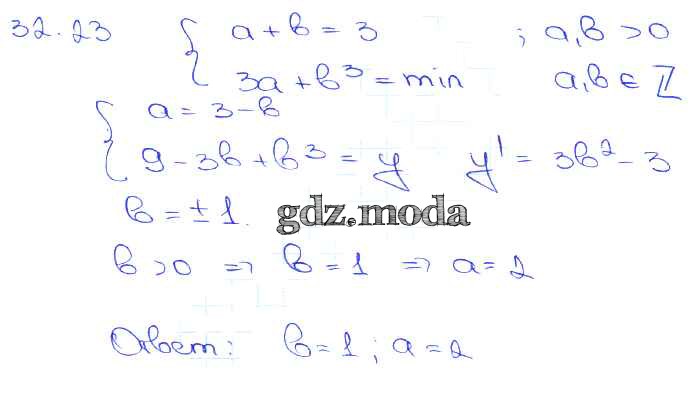 32.23 { a + b = 3 ; a,b > 0
3a + b³ = min a,b ∈ ℤ
{ a = 3 - b
9 - 3b + b³ = y y' = 3b² - 3
b = ± 1. gdz.moda
b > 0 ⇒ b = 1 ⇒ a = 2
Ответ: b = 1 ; a = 2